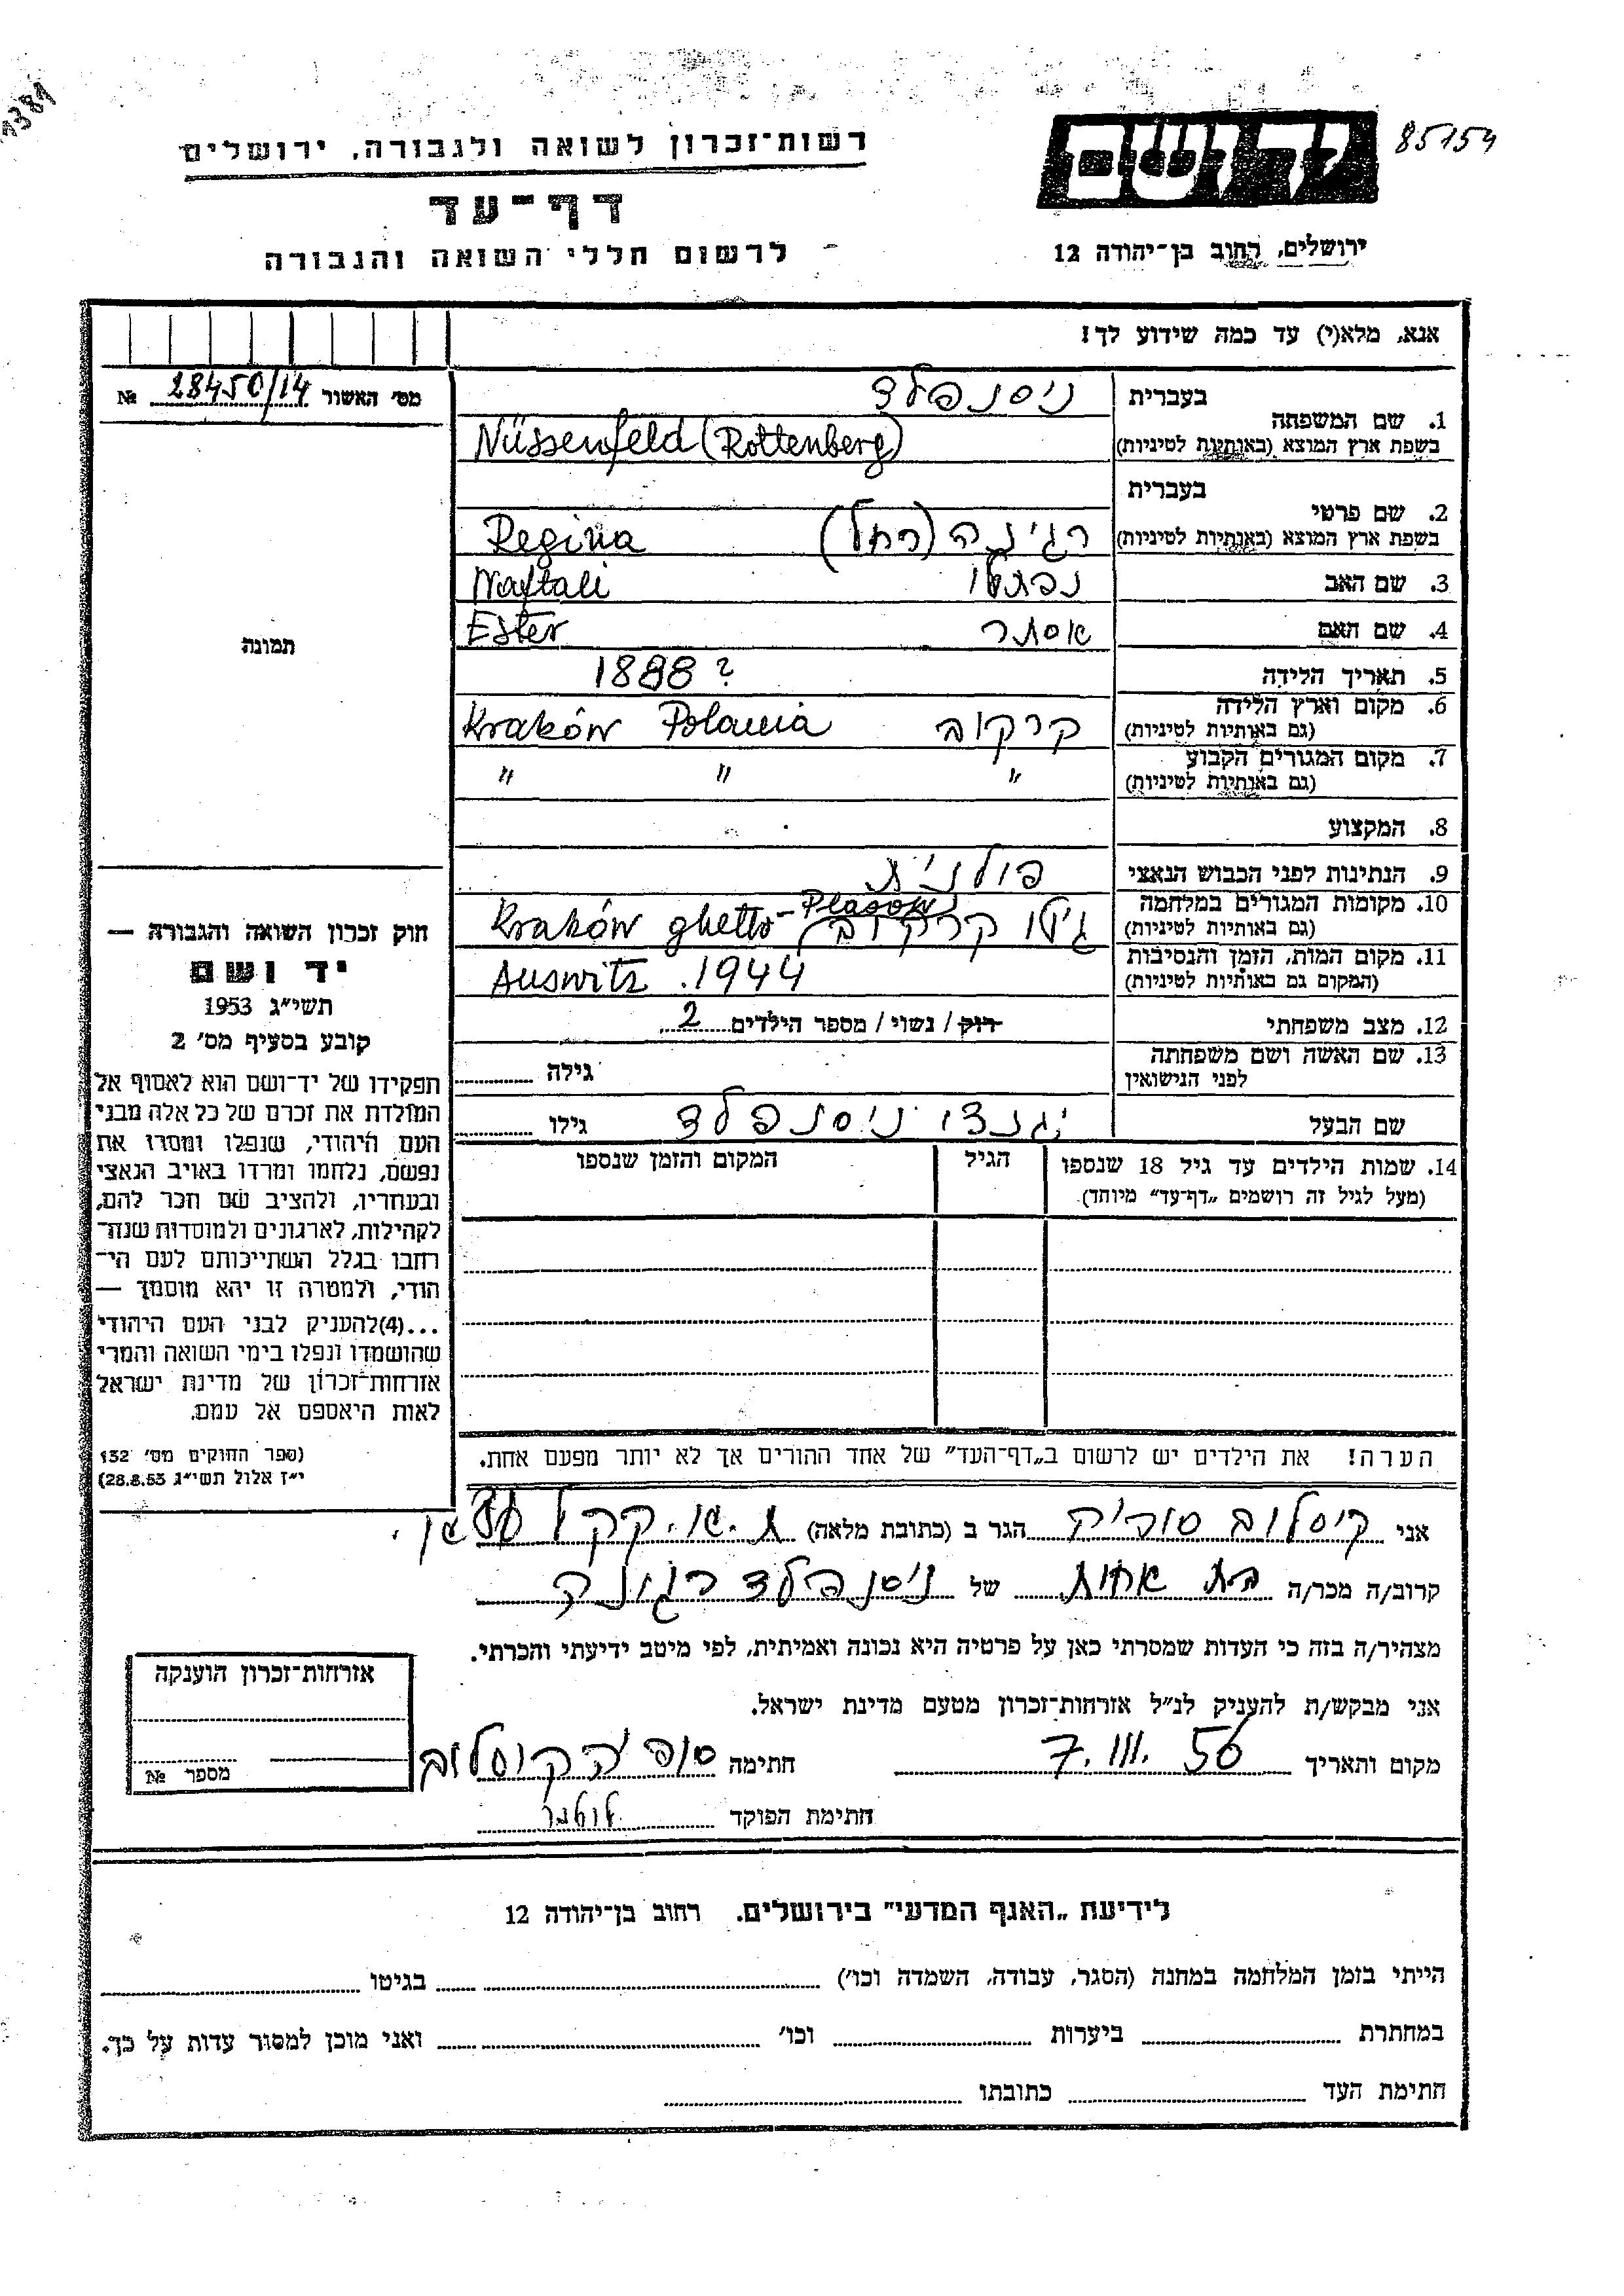 85154
יד ושם
ירושלים, רחוב בן־יהודה 12
רשות־זכרון לשואה ולגבורה, ירושלים
דף־עד
לרשום חללי השואה והגבורה
אנא, מלא(י) עד כמה שידוע לך!
מס' האשור 28450/14 №
תמונה
1. שם המשפחה בעברית ניסנפלד
בשפת ארץ המוצא (באותיות לטיניות) Nüssenfeld (Rottenberg)
2. שם פרטי בעברית
בשפת ארץ המוצא (באותיות לטיניות) רגינה (רחל) Regina
3. שם האב נפתלי Naftali
4. שם האם אסתר Ester
5. תאריך הלידה 1888 ?
6. מקום וארץ הלידה קרקוב Kraków Polania
(גם באותיות לטיניות)
7. מקום המגורים הקבוע " " "
(גם באותיות לטיניות)
8. המקצוע
9. הנתינות לפני הכבוש הנאצי פולנית
10. מקומות המגורים במלחמה גיטו קרקוב Kraków ghetto - Plasow
(גם באותיות לטיניות)
11. מקום המות, הזמן והנסיבות Auswitz .1944
(המקום גם באותיות לטיניות)
12. מצב משפחתי רוק / נשוי / מספר הילדים 2
13. שם האשה ושם משפחתה גילה
לפני הנישואין
שם הבעל יגנצו ניסנפלד גילו
14. שמות הילדים עד גיל 18 שנספו הגיל המקום והזמן שנספו
(מעל לגיל זה רושמים „דף־עד” מיוחד)
הערה! את הילדים יש לרשום ב„דף־העד” של אחד ההורים אך לא יותר מפעם אחת.
חוק זכרון השואה והגבורה —
יד ושם
תשי״ג 1953
קובע בסעיף מס' 2
תפקידו של יד־ושם הוא לאסוף אל
המולדת את זכרם של כל אלה מבני
העם היהודי, שנפלו ומסרו את
נפשם, נלחמו ומרדו באויב הנאצי
ובעוזריו, ולהציב שם וזכר להם,
לקהילות, לארגונים ולמוסדות שנח־
רבו בגלל השתייכותם לעם הי־
הודי, ולמטרה זו יהא מוסמך —
...(4)להעניק לבני העם היהודי
שהושמדו ונפלו בימי השואה והמרי
אזרחות־זכרון של מדינת ישראל
לאות היאספם אל עמם.
(ספר החוקים מס' 132
י״ז אלול תשי״ג 28.8.53)
אני קיסלוב סופיה הגר ב (כתובת מלאה) ת.א. קק״ל
קרוב/ה מכר/ה בת אחות של ניסנפלד רגינה
מצהיר/ה בזה כי העדות שמסרתי כאן על פרטיה היא נכונה ואמיתית, לפי מיטב ידיעתי והכרתי.
אני מבקש/ת להעניק לנ״ל אזרחות־זכרון מטעם מדינת ישראל.
מקום ותאריך 7. III. 56 חתימה סופיה קיסלוב
חתימת הפוקד
אזרחות־זכרון הוענקה
מספר №
לידיעת „האגף המדעי” בירושלים. רחוב בן־יהודה 12
הייתי בזמן המלחמה במחנה (הסגר, עבודה, השמדה וכו') בגיטו
במחתרת ביערות וכו' ואני מוכן למסור עדות על כך.
חתימת העד כתובתו